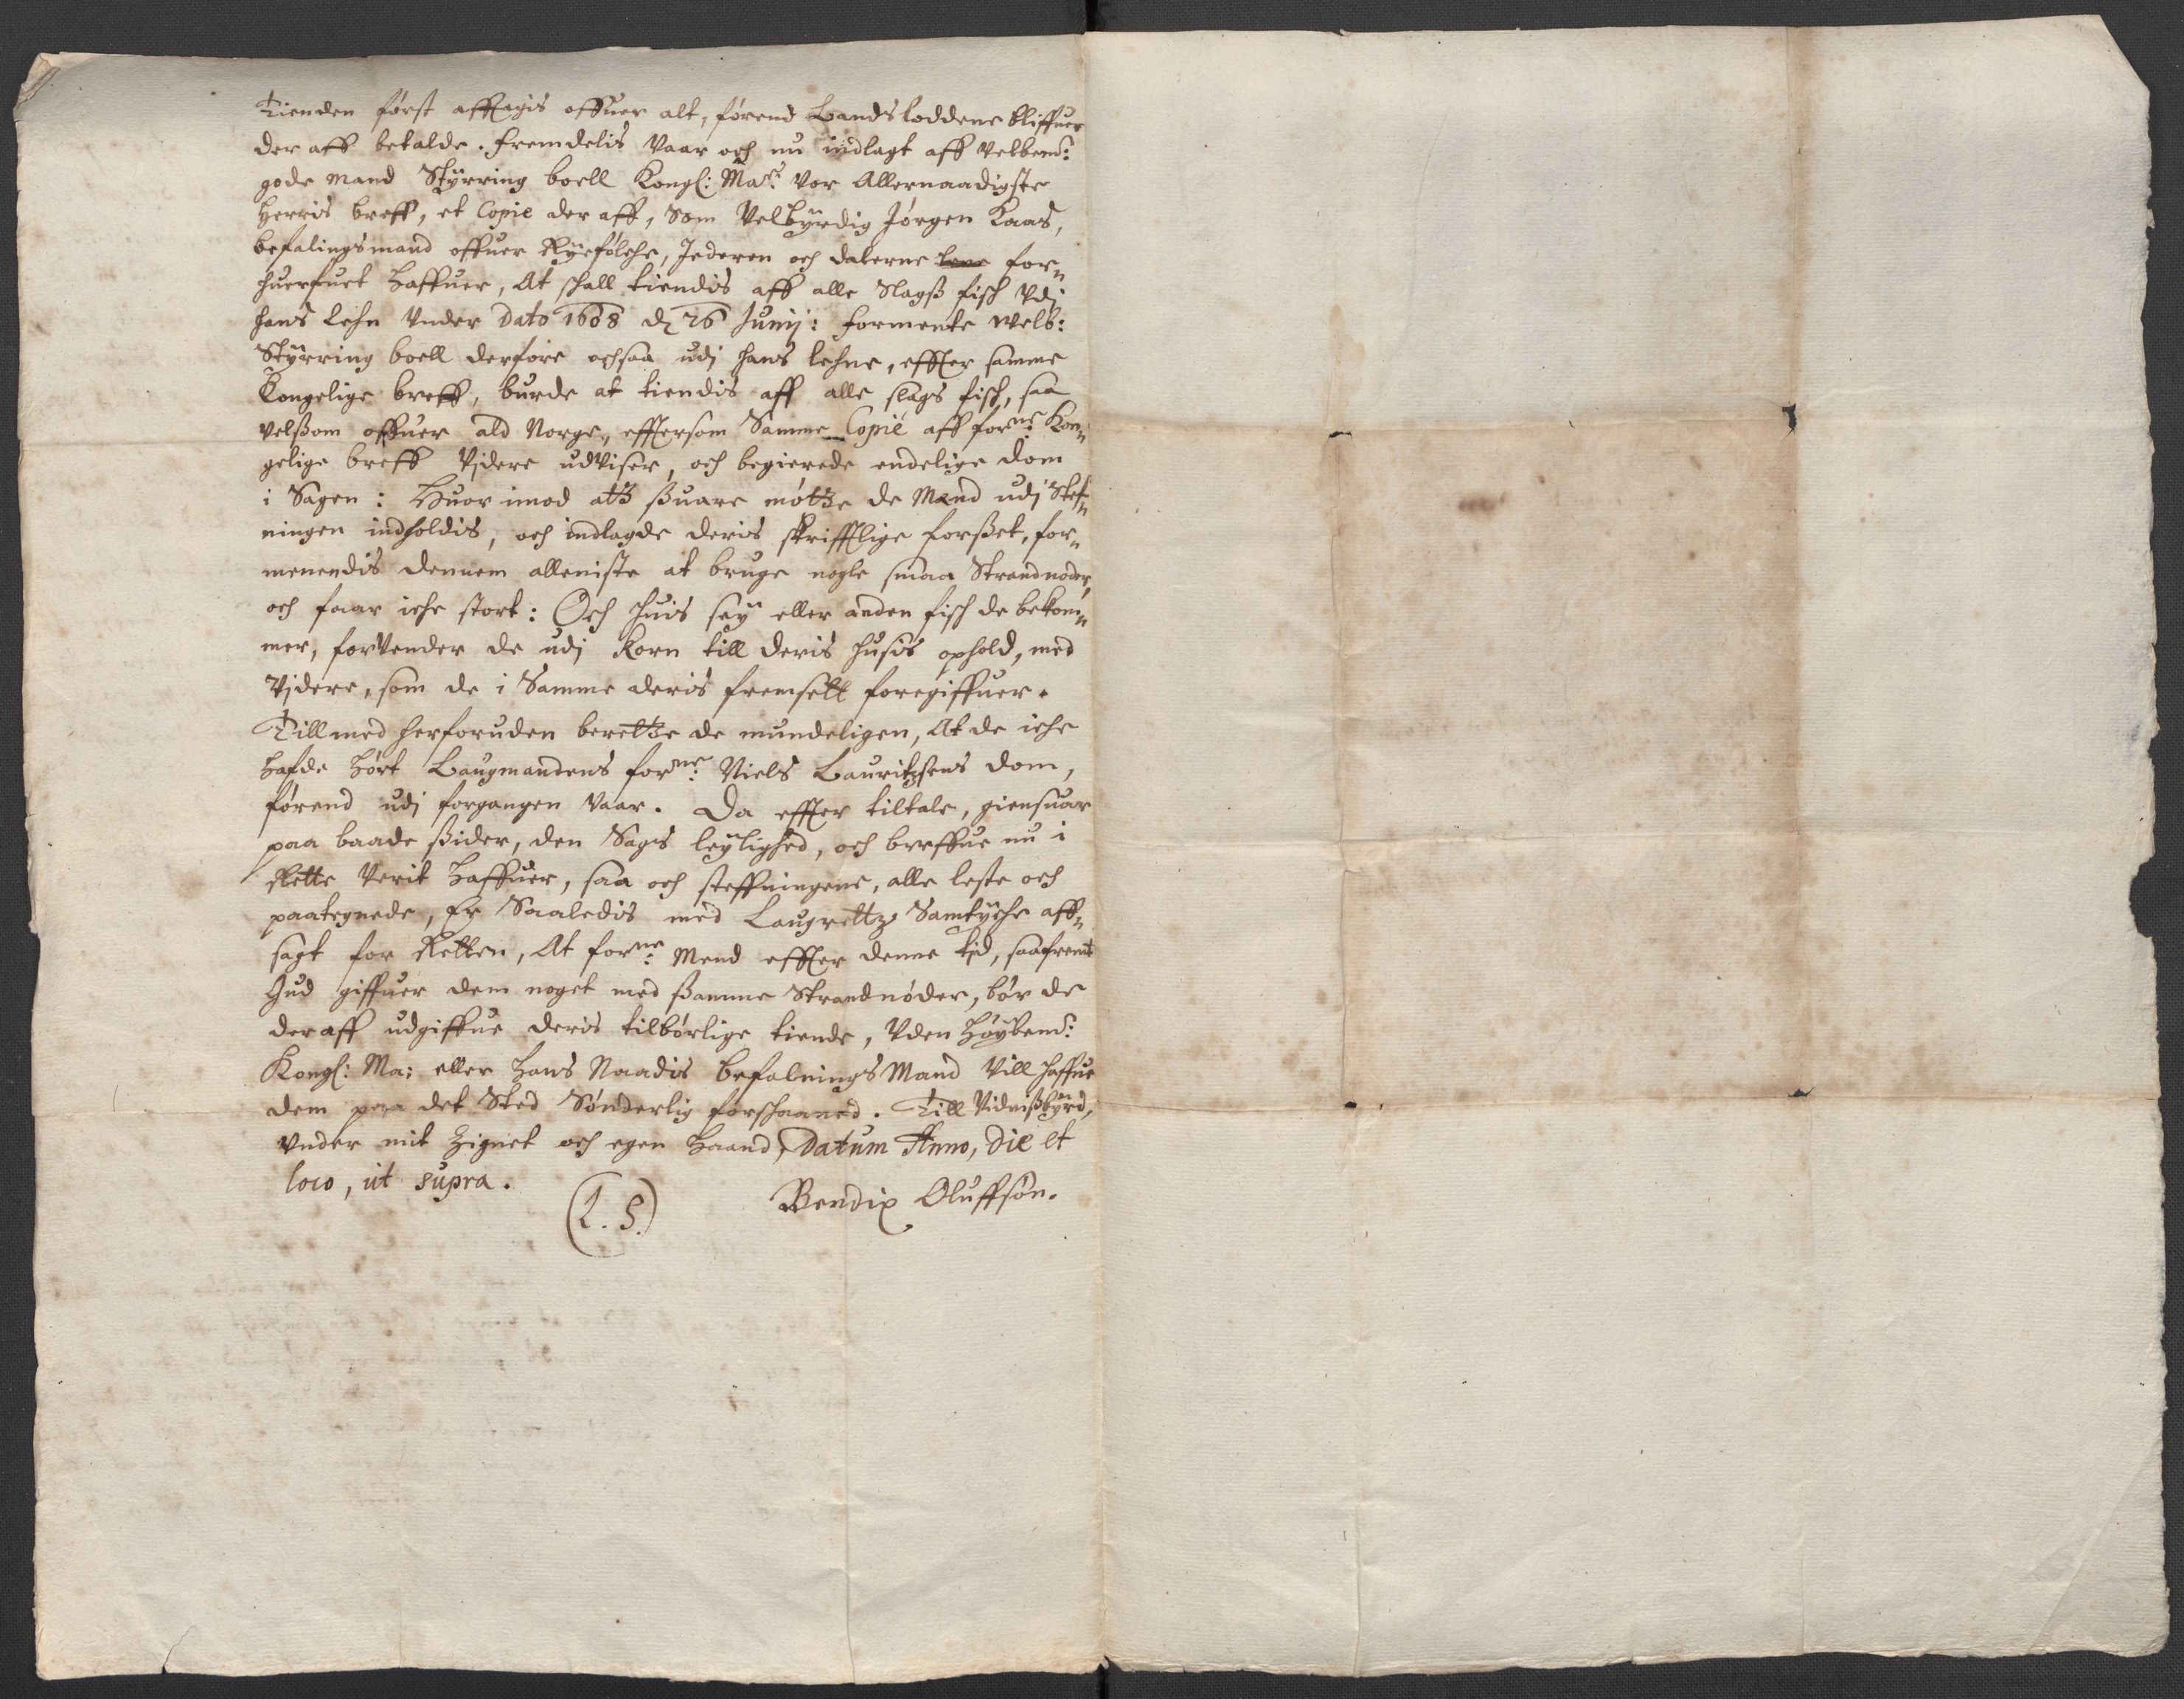 Tienden først afftagis offuer alt, førend Landsloddene bliffuer
der aff betalde. Fremdelis vaar och nu indlagt aff velbemte:
gode mand Styrring boell Kongl: Matz: vor Allernaadigste
Herris breff, et Copie der aff, Som Velbyrdig Jørgen Kaas,
befalingsmand offuer Ryefølche, Jederen och dalerne for„
huerfuet haffuer, At schall tiendis aff alle Slagß fisch Vdj
hans Lehn Vnder Dato 1608 d 26 Junij: Formente welb:
Styrring boell derfore ochsaa udj hans lehne, effter samme
Kongelige breff, burde at tiendis aff alle slags fisch, saa
velßom offuer ald Norge, efftersom Samme Copie aff forne: Kon„
gelige breff Vjdere udViser, och begierede endelige dom
i Sagen: Huor imod att ßuare møtte de Mend udj Stef„
ningen indholdis, och indlagde deris skrifftlige forßet, for„
menendis dennem alleniste at bruge nogle smaa Strandnoder,
och faar iche stort: Och huis sey eller anden fisch de bekom„
mer, forVender de udj Korn till deris husis ophold, med
Vjdere, som de i Samme deris fremsett foregiffuer.
Till med herforuden berette de mundeligen, At de iche
hafde hørt Laugmandens forne: Niels Lauritzsens dom,
førend udj forgangen Vaar. Da effter tiltale, giensuar
paa baade ßider, den Sags leylighed, och breffue nu i
Rette Verit haffuer, saa och steffningene, alle leste och
paategnede, Er Saaledis med Laugrettz Samtyche aff„
sagt for Retten, At forne: Mend effter denne tjd, saafremt
Gud giffuer dem noget med ßamme Strandnøder, bør de
der aff udgiffue deris tilbørlige tiende, Vden Høybemte:
Kongl: Ma: eller Hans Naadis befalnings Mand Vill haffue
dem paa det Sted Sønderlig forschaaned. Till Vidnißbyrd,
Vnder mit Zignet och egen Haand, Datum Anno, Die et
loco, ut supra.
(L. S.) Bendix Oluffsøn.